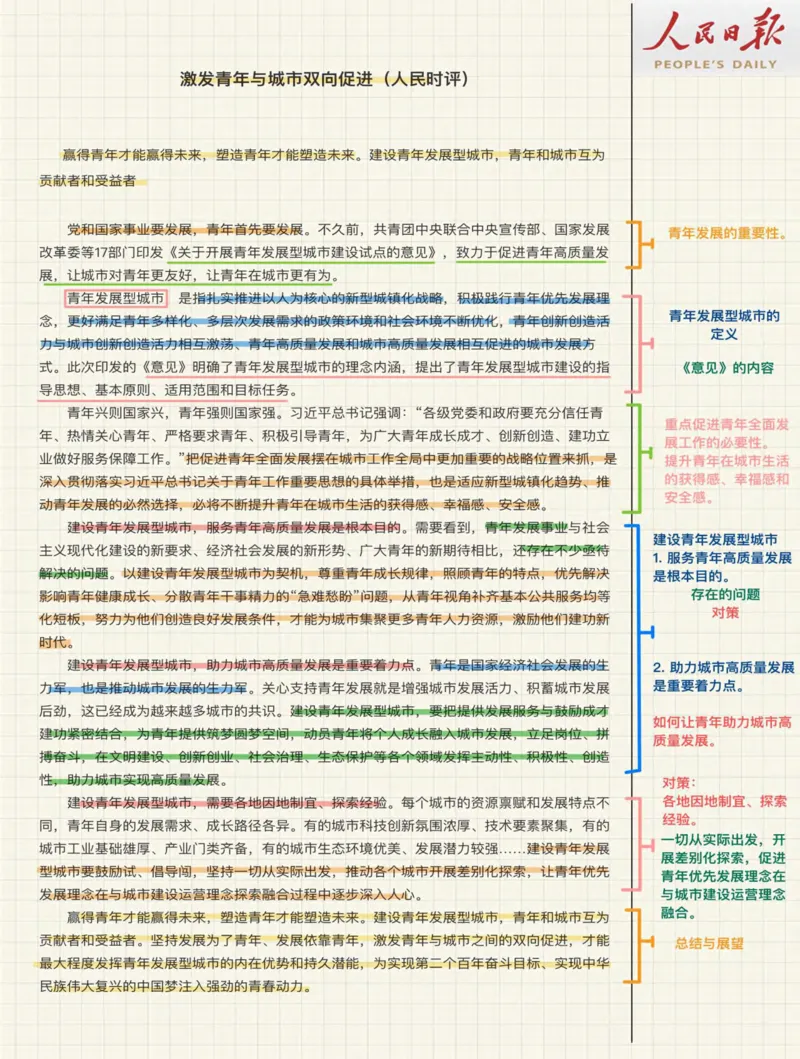 人民日报
PEOPLE'S DAILY
激发青年与城市双向促进（人民时评）
赢得青年才能赢得未来，塑造青年才能塑造未来。建设青年发展型城市，青年和城市互为
贡献者和受益者
党和国家事业要发展，青年首先要发展。不久前，共青团中央联合中央宣传部、国家发展
改革委等17部门印发《关于开展青年发展型城市建设试点的意见》，致力于促进青年高质量发
展，让城市对青年更友好，让青年在城市更有为。
青年发展型城市 是指扎实推进以人为核心的新型城镇化战略，积极践行青年优先发展理
念，更好满足青年多样化、多层次发展需求的政策环境和社会环境不断优化，青年创新创造活
力与城市创新创造活力相互激荡、青年高质量发展和城市高质量发展相互促进的城市发展方
式。此次印发的《意见》明确了青年发展型城市的理念内涵，提出了青年发展型城市建设的指
导思想、基本原则、适用范围和目标任务。
青年兴则国家兴，青年强则国家强。习近平总书记强调：“各级党委和政府要充分信任青
年、热情关心青年、严格要求青年、积极引导青年，为广大青年成长成才、创新创造、建功立
业做好服务保障工作。”把促进青年全面发展摆在城市工作全局中更加重要的战略位置来抓，是
深入贯彻落实习近平总书记关于青年工作重要思想的具体举措，也是适应新型城镇化趋势、推
动青年发展的必然选择，必将不断提升青年在城市生活的获得感、幸福感、安全感。
建设青年发展型城市，服务青年高质量发展是根本目的。需要看到，青年发展事业与社会
主义现代化建设的新要求、经济社会发展的新形势、广大青年的新期待相比，还存在不少亟待
解决的问题。以建设青年发展型城市为契机，尊重青年成长规律，照顾青年的特点，优先解决
影响青年健康成长、分散青年干事精力的“急难愁盼”问题，从青年视角补齐基本公共服务均等
化短板，努力为他们创造良好发展条件，才能为城市集聚更多青年人力资源，激励他们建功新
时代。
建设青年发展型城市，助力城市高质量发展是重要着力点。青年是国家经济社会发展的生
力军，也是推动城市发展的生力军。关心支持青年发展就是增强城市发展活力、积蓄城市发展
后劲，这已经成为越来越多城市的共识。建设青年发展型城市，要把提供发展服务与鼓励成才
建功紧密结合，为青年提供筑梦圆梦空间，动员青年将个人成长融入城市发展，立足岗位、拼
搏奋斗，在文明建设、创新创业、社会治理、生态保护等各个领域发挥主动性、积极性、创造
性，助力城市实现高质量发展。
建设青年发展型城市，需要各地因地制宜、探索经验。每个城市的资源禀赋和发展特点不
同，青年自身的发展需求、成长路径各异。有的城市科技创新氛围浓厚、技术要素聚集，有的
城市工业基础雄厚、产业门类齐备，有的城市生态环境优美、发展潜力较强……建设青年发展
型城市要鼓励试、倡导闯，坚持一切从实际出发，推动各个城市开展差别化探索，让青年优先
发展理念在与城市建设运营理念探索融合过程中逐步深入人心。
赢得青年才能赢得未来，塑造青年才能塑造未来。建设青年发展型城市，青年和城市互为
贡献者和受益者。坚持发展为了青年、发展依靠青年，激发青年与城市之间的双向促进，才能
最大程度发挥青年发展型城市的内在优势和持久潜能，为实现第二个百年奋斗目标、实现中华
民族伟大复兴的中国梦注入强劲的青春动力。
青年发展的重要性。
青年发展型城市的
定义
《意见》的内容
重点促进青年全面发
展工作的必要性。
提升青年在城市生活
的获得感、幸福感和
安全感。
建设青年发展型城市
1. 服务青年高质量发展
是根本目的。
存在的问题
对策
2. 助力城市高质量发展
是重要着力点。
如何让青年助力城市高
质量发展。
对策：
各地因地制宜、探索
经验。
一切从实际出发，开
展差别化探索，促进
青年优先发展理念在
与城市建设运营理念
融合。
总结与展望